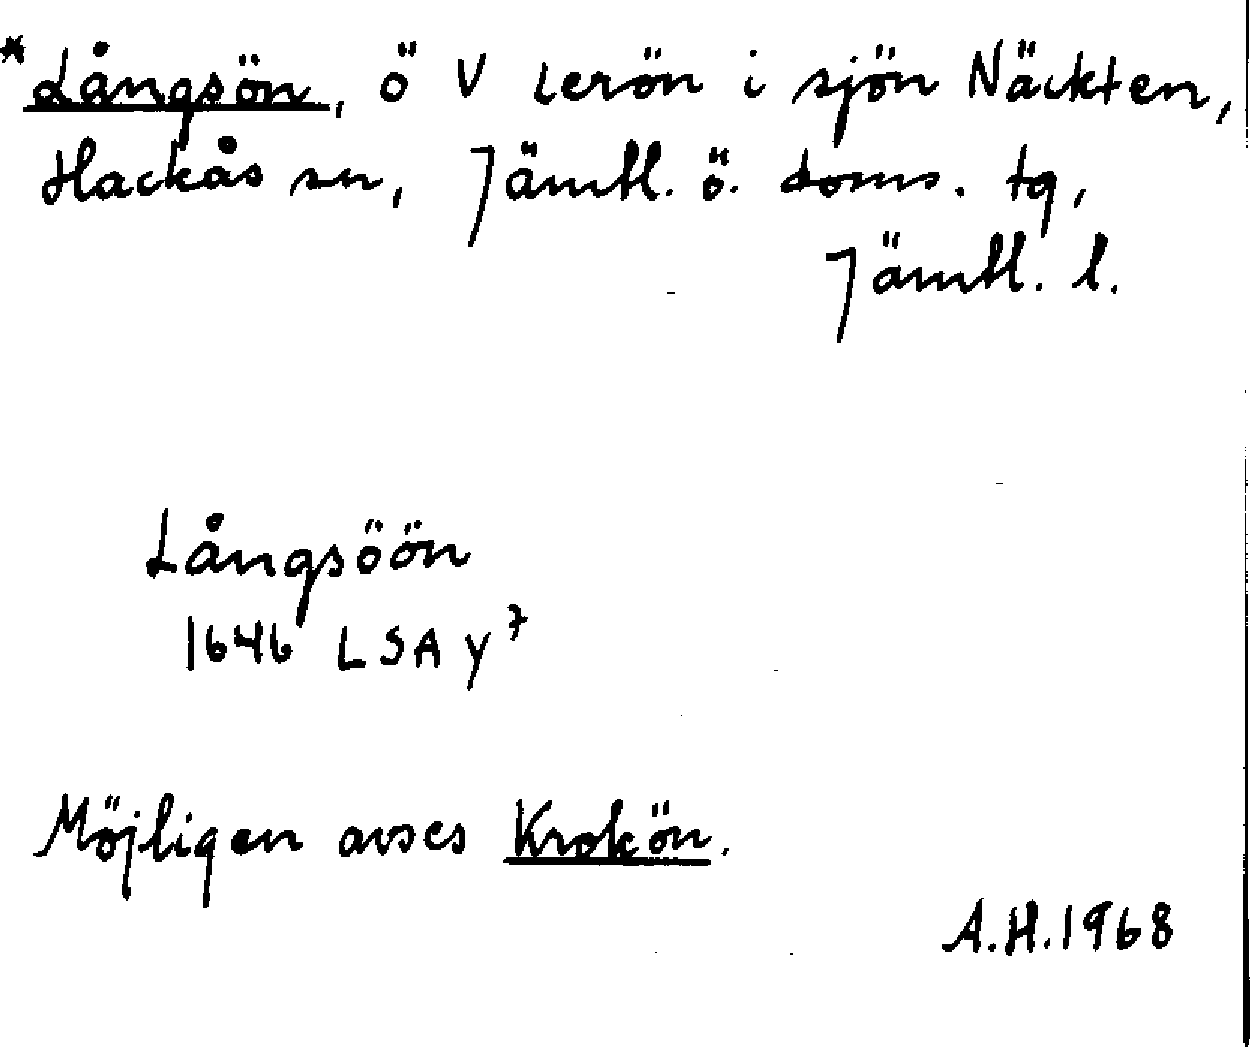 *Långsön, ö V Lerön i sjön Näckten,
Hackås sn, Jämtl. ö. doms. tg,
Jämtl. l.
Långsöön
1646 LSA y⁷
Möjligen avses Krokön.
A.H.1968